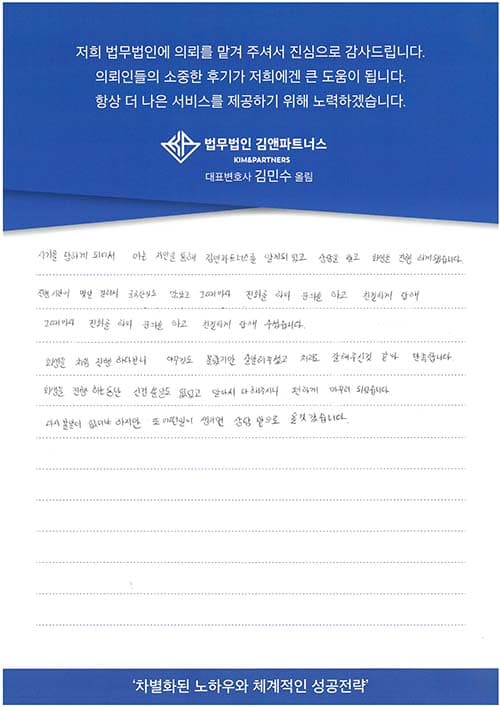 저희 법무법인에 의뢰를 맡겨 주셔서 진심으로 감사드립니다.
의뢰인들의 소중한 후기가 저희에겐 큰 도움이 됩니다.
항상 더 나은 서비스를 제공하기 위해 노력하겠습니다.
법무법인 김앤파트너스
KIM&PARTNERS
대표변호사 김민수 올림
사기를 당하게 되어서 아는 지인을 통해 김앤파트너스를 알게되었고 상담을 받고 회생을 진행 하게 됐습니다.
진행 기간이 몇달 걸려서 궁금한것도 많았고 그때마다 전화를 해서 문의를 하고 친절하게 답해
그때마다 전화를 해서 문의를 하고 친절하게 답해 주셨습니다.
회생을 처음 진행 하다보니 아무것도 몰랐지만 잘 처리도 잘 해주신것 같아 만족합니다
회생을 진행 하는동안 신경 쓸일도 없었고 알아서 다 해주시니 편하게 마무리 되었습니다
다시 없어야 하지만 또 어려움이 생기면 상담 받으로 올것 같습니다.
‘차별화된 노하우와 체계적인 성공전략’